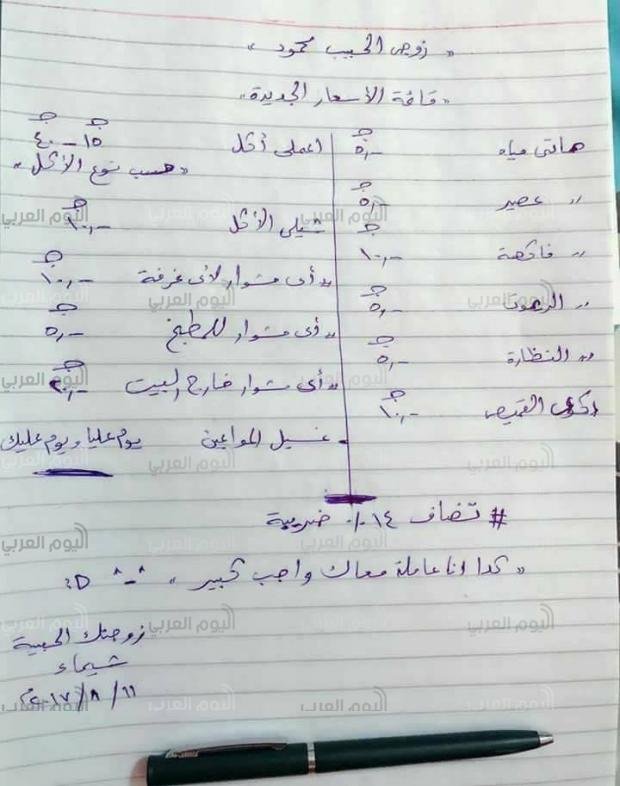 « زوجى الحبيب محمود »
« قائمة الأسعار الجديدة »
هاتى مياه ٥٫- جـ
〃 عصير ٥٫- جـ
〃 فاكهة ١٠٫- جـ
〃 الريموت ٥٫- جـ
〃 النظارة ٥٫- جـ
اكوى القميص ١٠٫- جـ
اعملى أكل ١٥ جـ - ٤٠ جـ
« حسب نوع الأكل »
شيلى الأكل ١٠٫- جـ
〃 أى مشوار لأى غرفة ١٠٫- جـ
〃 أى مشوار للمطبخ ٥٫- جـ
〃 أى مشوار خارج البيت جـ
- غسيل المواعين يوم عليا ويوم عليك
# تضاف ١٤ ٪ ضريبة
« كدا انا عاملة معاك واجب كبير » ^_^ :D
زوجتك الحبيبة
شيماء
٢٠١٧/٨/١١
اليوم العربي